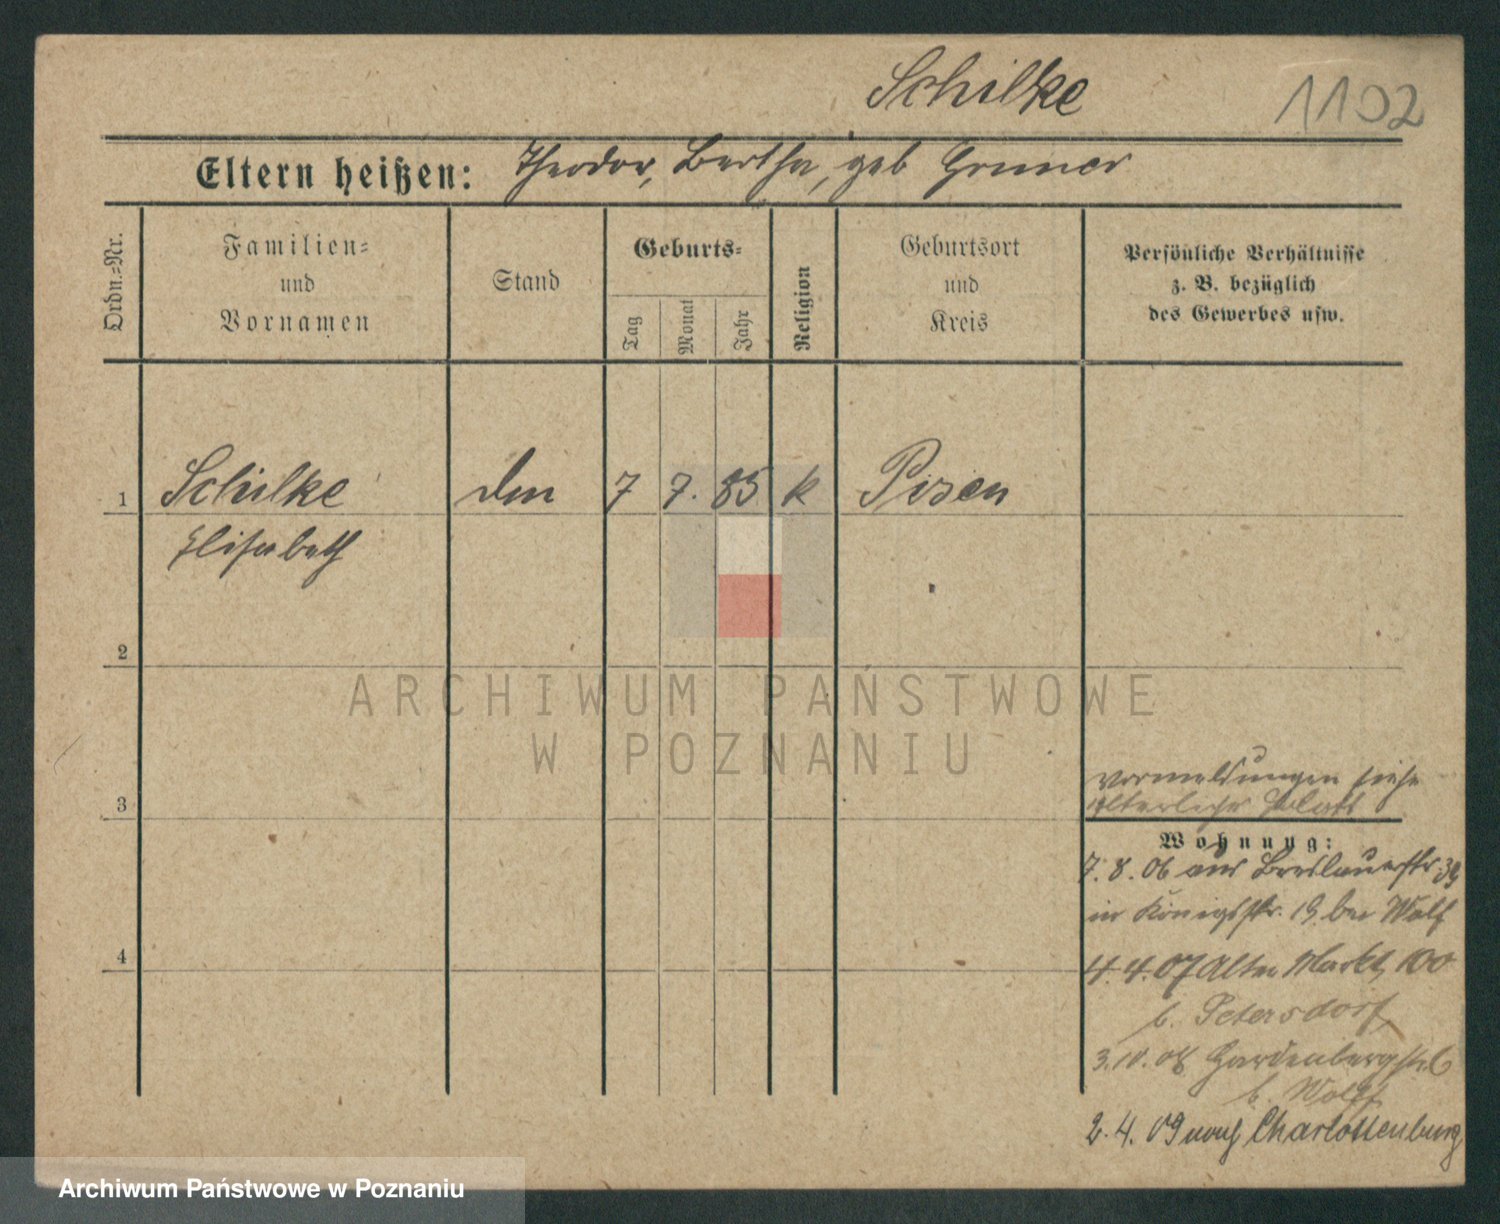 Schilke
1102
Eltern heißen: Theodor, Bertha, geb
Ordn.=Nr.
Familien=
und
Vornamen
Stand
Geburts=
Tag
Monat
Jahr
Religion
Geburtsort
und
Kreis
Persönliche Verhältnisse
z. B. bezüglich
des Gewerbes usw.
1 Schilke 7 7. 85 k Posen
Elisabeth
2
ARCHIWUM PAŃSTWOWE
W POZNANIU
3
Vormeldungen siehe
Wohnung:
7. 8. 06 aus Breslauerstr. 39
in Königsstr. 19 bei Wolf
4
4. 4. 07 Alter Markt 100
b. Petersdorf
3. 10. 08
b. Wolff
2. 4. 09 nach Charlottenburg
Archiwum Państwowe w Poznaniu